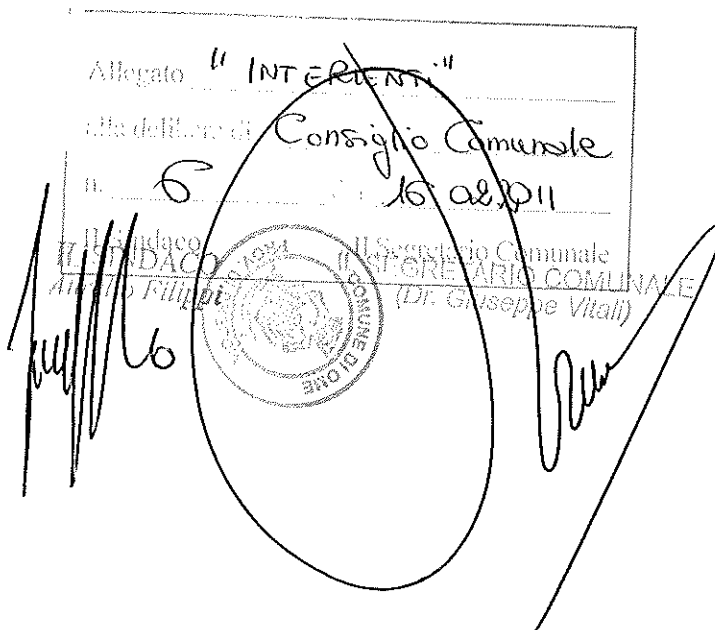 Allegato "INTERVENTI"
alla delibera di Consiglio Comunale
n. 6 16.02.2011
Il Sindaco Il Segretario Comunale
IL SINDACO IL SEGRETARIO COMUNALE
Filippi (Dr. Giuseppe Vitali)
COMUNE DI ONE